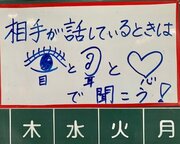 相手が話しているときは
目と耳と心
で聞こう!
木 水 火 月